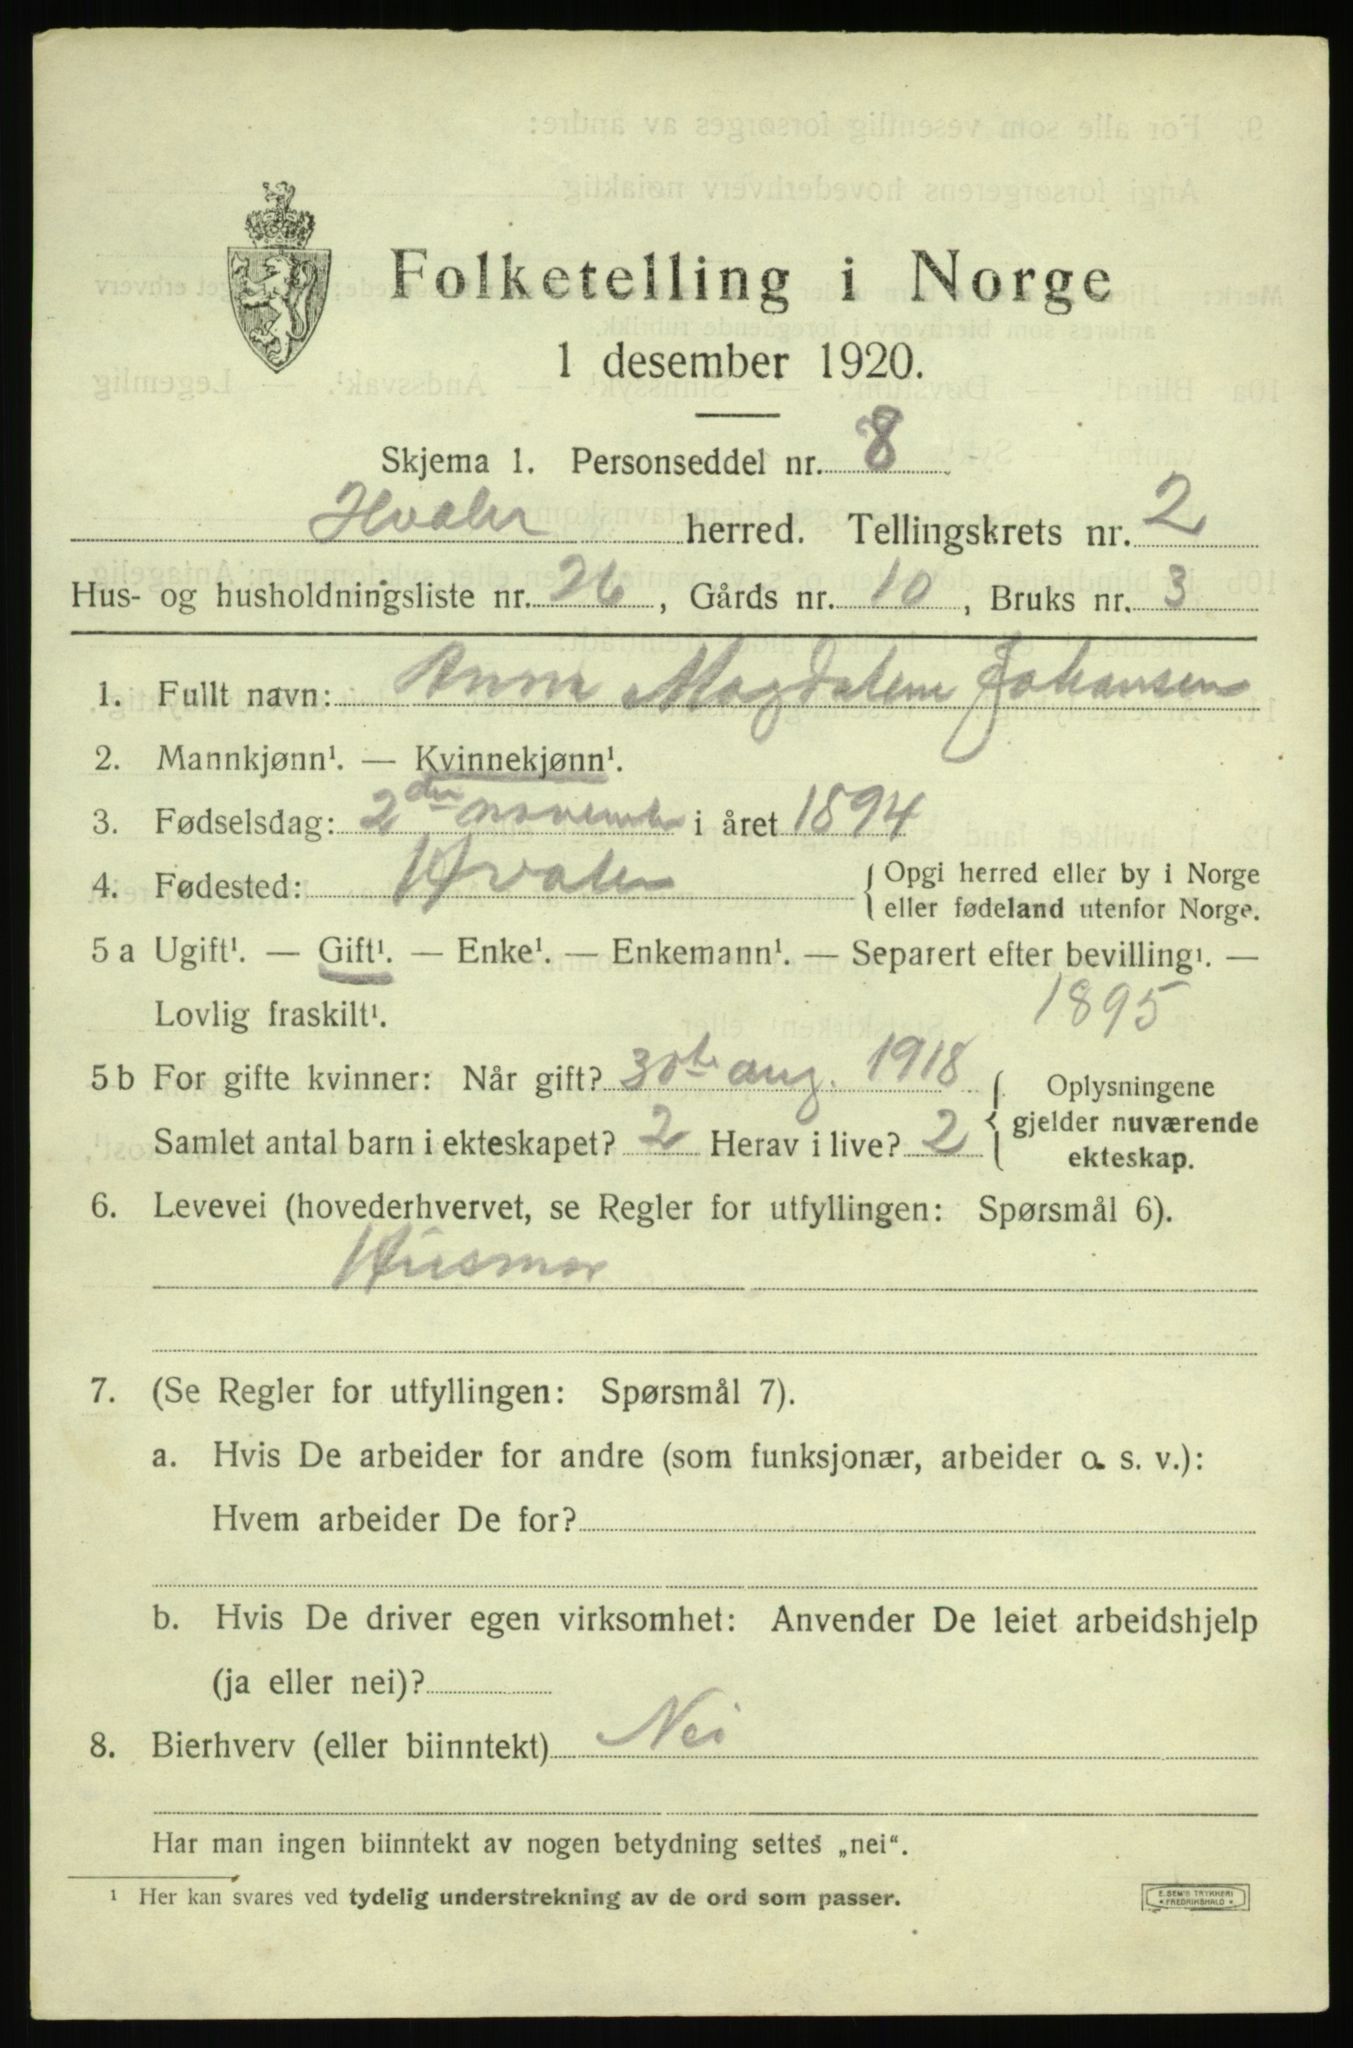 Folketelling i Norge
1 desember 1920.
Skjema 1. Personseddel nr. 8
Hvaler herred. Tellingskrets nr. 2
Hus- og husholdningsliste nr. 26, Gårds nr. 10, Bruks nr. 3
1. Fullt navn: Anna Magdalene Johansen
2. Mannkjønn¹. — Kvinnekjønn¹.
3. Fødselsdag: 2den novemb i året 1894
4. Fødested: Hvaler { Opgi herred eller by i Norge
eller fødeland utenfor Norge.
5 a Ugift¹. — Gift¹. — Enke¹. — Enkemann¹. — Separert efter bevilling¹. —
Lovlig fraskilt¹. 1895
5 b For gifte kvinner: Når gift? 30te aug. 1918 { Oplysningene
Samlet antal barn i ekteskapet? 2 Herav i live? 2 gjelder nuværende
ekteskap.
6. Levevei (hovederhvervet, se Regler for utfyllingen: Spørsmål 6).
Husmor
7. (Se Regler for utfyllingen: Spørsmål 7).
a. Hvis De arbeider for andre (som funksjonær, arbeider o. s. v.):
Hvem arbeider De for?
b. Hvis De driver egen virksomhet: Anvender De leiet arbeidshjelp
(ja eller nei)?
8. Bierhverv (eller biinntekt) Nei
Har man ingen biinntekt av nogen betydning settes „nei“.
¹ Her kan svares ved tydelig understrekning av de ord som passer.
E. SEM'S TRYKKERI
FREDRIKSHALD